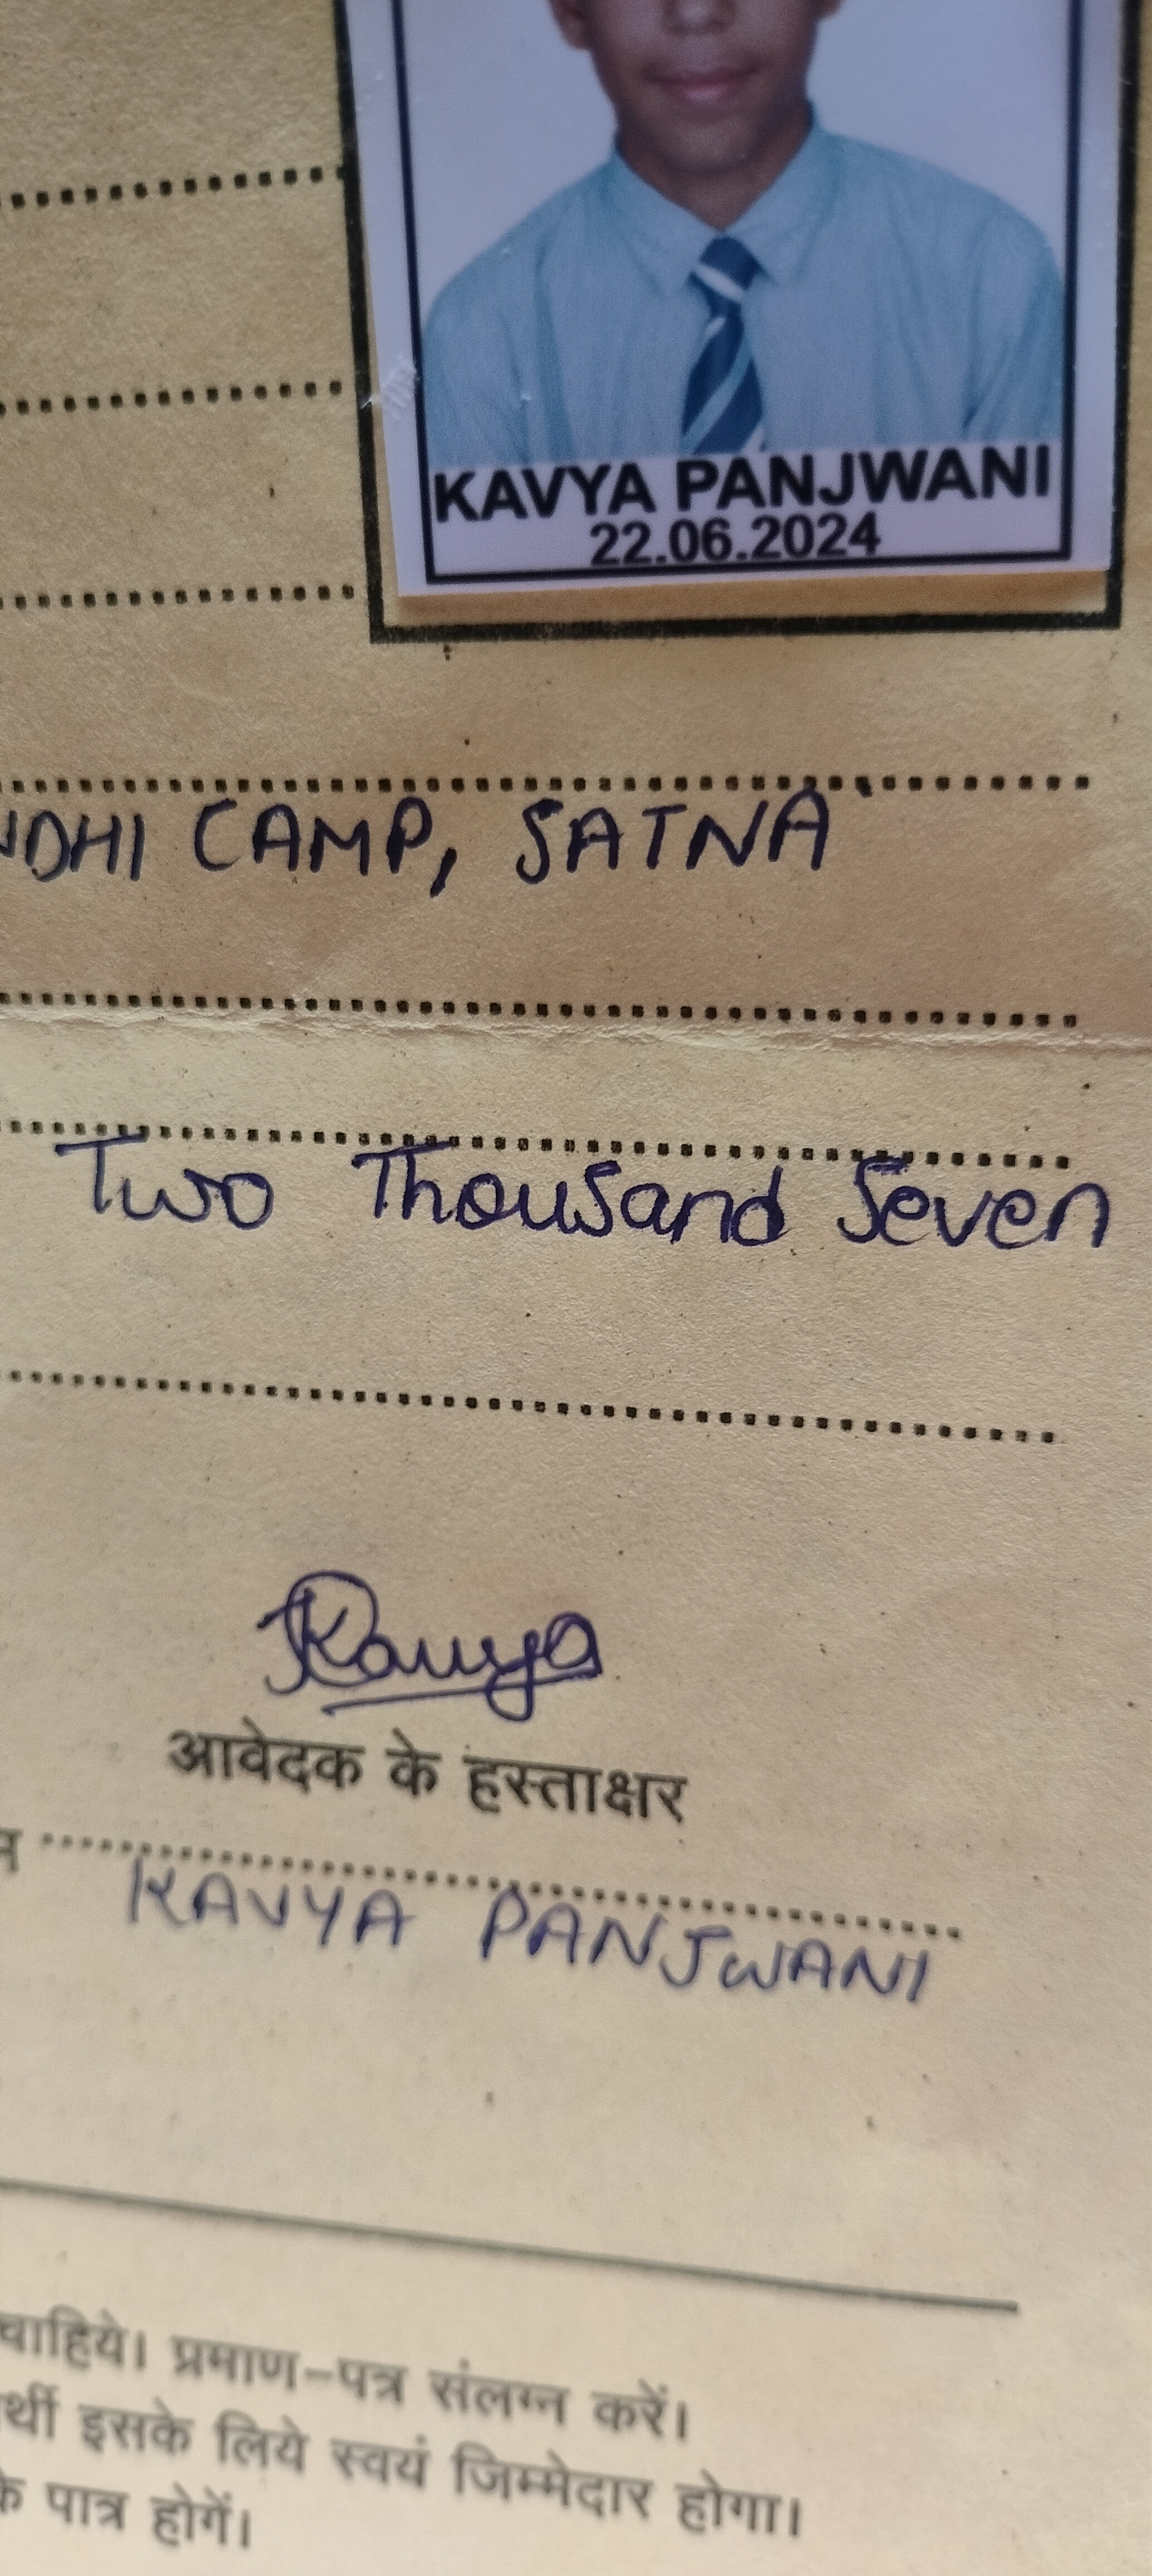 KAVYA PANJWANI
22.06.2024
NDHI CAMP, SATNA
Two Thousand Seven
Kavya
आवेदक के हस्ताक्षर
KAVYA PANJWANI
चाहिये। प्रमाण-पत्र संलग्न करें।
र्थी इसके लिये स्वयं जिम्मेदार होगा।
के पात्र होगें।